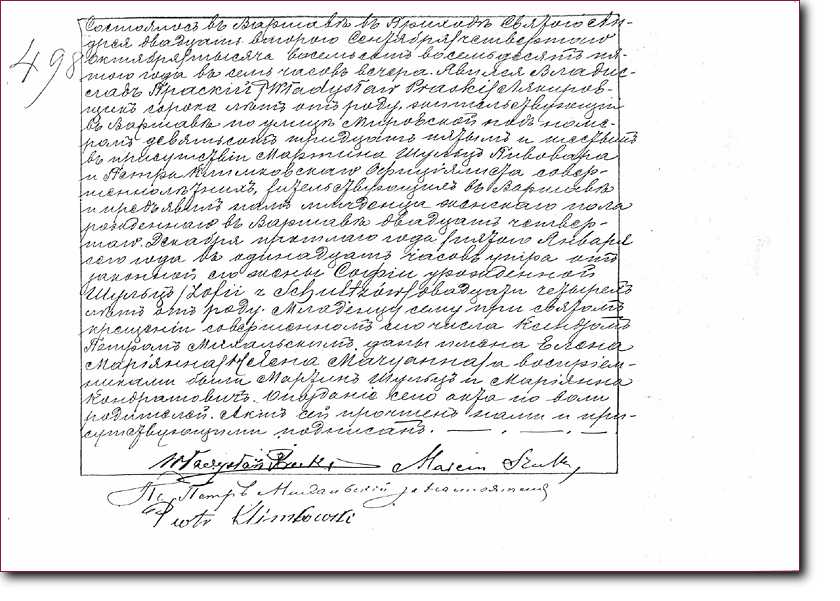 498
Состоялось въ Варшавѣ въ Приходѣ Святого Ан-
дрея двадцать второго Сентября/четвертого
Октября/тысяча восемьсотъ восемьдесятъ пя-
того года въ семь часовъ вечера. Явился Владис-
лавъ Праскій /Władysław Praski/
щикъ сорока лѣтъ отъ роду, жительствующій
въ Варшавѣ по улицѣ Мировской подъ номе-
ромъ девятьсотъ тридцать пятымъ и шестымъ
въ присутствіи Мартина Шульцъ Пивовара
и Петра Климковскаго Оффиціялиста совер-
шеннолѣтнихъ, жительствующихъ въ Варшавѣ
и предъявилъ намъ младенца женскаго пола
рожденнаго въ Варшавѣ двадцать четвер-
таго Декабря прошлаго года /пятого Января
сего года въ одинадцать часовъ утра отъ
законной его жены Софіи урожденной
Шульцъ /Zofii z Schultzów/ двадцати четырехъ
лѣтъ отъ роду. Младенцу сему при святомъ
крещеніи совершенномъ сего числа Ксендзомъ
Петромъ Михальскимъ даны имена Елена
Маріянна /Helena Maryanna/ а воспріем-
никами были Марцинъ Шульцъ и Маріянна
Кондратовичъ. Опозданіе сего акта по воли
родителей. Актъ сей прочтенъ нами и при-
сутствующими подписанъ. — . — . —
Władysław Praski Marcin Szulc
Кс. Петръ Михальскій
Piotr Klimkowski